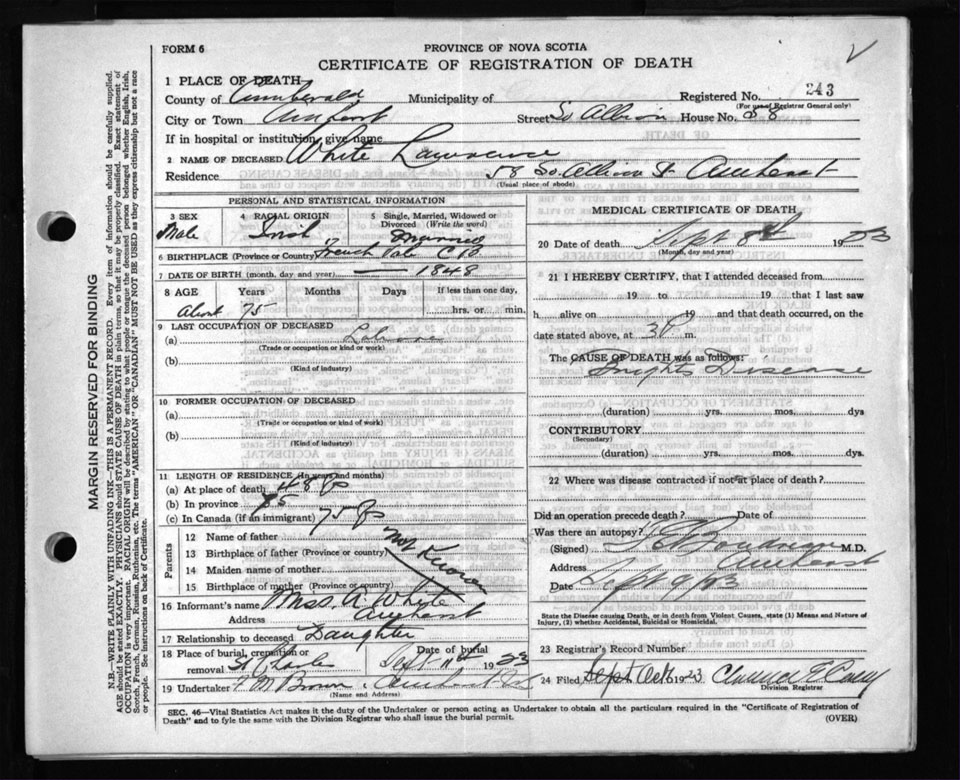 FORM 6
PROVINCE OF NOVA SCOTIA
CERTIFICATE OF REGISTRATION OF DEATH
1 PLACE OF DEATH
County of Cumberland Municipality of Registered No. 343
(For use of Registrar General only)
City or Town Amherst Street So Albion House No. 58
If in hospital or institution, give name
2 NAME OF DECEASED White Lawrence
Residence 58 So. Albion St Amherst
(Usual place of abode)
PERSONAL AND STATISTICAL INFORMATION
3 SEX 4 RACIAL ORIGIN 5 Single, Married, Widowed or Divorced (Write the word)
Male Irish Married
6 BIRTHPLACE (Province or Country) French
7 DATE OF BIRTH (month, day and year) — 1848
8 AGE Years Months Days If less than one day,
About 75 hrs. or min.
9 LAST OCCUPATION OF DECEASED
(a)
(Trade or occupation or kind or work)
(b)
(Kind of industry)
10 FORMER OCCUPATION OF DECEASED
(a)
(Trade or occupation or kind or work)
(b)
(Kind of industry)
11 LENGTH OF RESIDENCE (In years and months)
(a) At place of death
(b) In province 75
(c) In Canada (if an immigrant) 75
Parents
12 Name of father
13 Birthplace of father (Province or country) Not Known
14 Maiden name of mother
15 Birthplace of mother (Province or country)
16 Informant's name Miss A. White
Address Amherst
17 Relationship to deceased Daughter
18 Place of burial, cremation or removal St Charles Date of burial Sept 11th 1923
19 Undertaker Brown Amherst
(Name and Address)
MEDICAL CERTIFICATE OF DEATH
20 Date of death Sept 8th 1923
(Month, day and year)
21 I HEREBY CERTIFY, that I attended deceased from
19 to 19 that I last saw
h alive on 19 and that death occurred, on
date stated above, at 3 P m.
The CAUSE OF DEATH was as follows:
Brights Disease
(duration) yrs. mos. dys
CONTRIBUTORY
(Secondary)
(duration) yrs. mos. dys.
22 Where was disease contracted if not at place of death?
Did an operation precede death? Date of
Was there an autopsy?
(Signed) M.D.
Address Amherst
Date Sept 9/23
State the Disease causing Death, or in death from Violent Causes, state (1) Means and Nature of
Injury, (2) whether Accidental, Suicidal or Homicidal.
23 Registrar's Record Number
24 Filed Sept 1923
Division Registrar
SEC. 46—Vital Statistics Act makes it the duty of the Undertaker or person acting as Undertaker to obtain all the particulars required in the "Certificate of Registration of
Death" and to fyle the same with the Division Registrar who shall issue the burial permit.
(OVER)
MARGIN RESERVED FOR BINDING
N.B.—WRITE PLAINLY WITH UNFADING INK—THIS IS A PERMANENT RECORD. Every item of information should be carefully supplied.
AGE should be stated EXACTLY. PHYSICIANS should STATE CAUSE OF DEATH in plain terms, so that it may be properly classified. Exact statement of
OCCUPATION is very important. RACIAL ORIGIN will be described by stating to what people or tongue the deceased person belonged whether English, Irish,
Scotch, French, German, Russian, Ruthenian, etc. The terms "AMERICAN" OR "CANADIAN" MUST NOT BE USED as they express citizenship but not a race
or people. See instructions on back of Certificate.